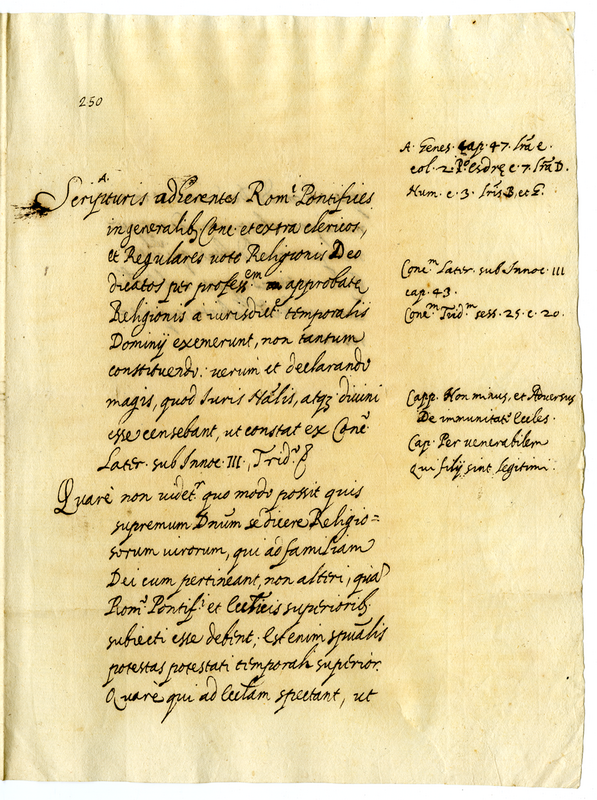 250
A.
Scripturis adherentes Rom.i Pontifices
in generalib. Conc. et extra clericos,
et Regulares voto Religionis Deo
dicatos per professem in approbata
Religionis a iurisdict. temporalis
Dominij exemerunt, non tantum
constituendo: verum et declarando
magis, quod Iuris Nãlis, atq; divini
esse censebant, ut constat ex Conc.
Later. sub Innoc. III., Trid.
Quare non videt.r quo modo possit quis
supremum Dnũm se dicere Religio=
sorum virorum, qui ad familiam
Dei cum pertineant, non alteri, quã
Rom. Pontif. et Eccticis superiorib.
subiecti esse debent; Est enim spũalis
potestas potestati temporali superior.
Quare qui ad Ecclãm spectant, ut
A. Genes. cap. 47. lrã e.
col. 2. Po. esdrę c. 7. lrã D.
Num. c. 3. lris B, et G.
Conc.m Later. sub Innoc. III
cap. 43.
Conc.m Trid.m sess. 25. c. 20.
Capp. Non minus, et Adversus
De immunitat. Eccles.
Cap. Per venerabilem
Qui filij sint legitimi.